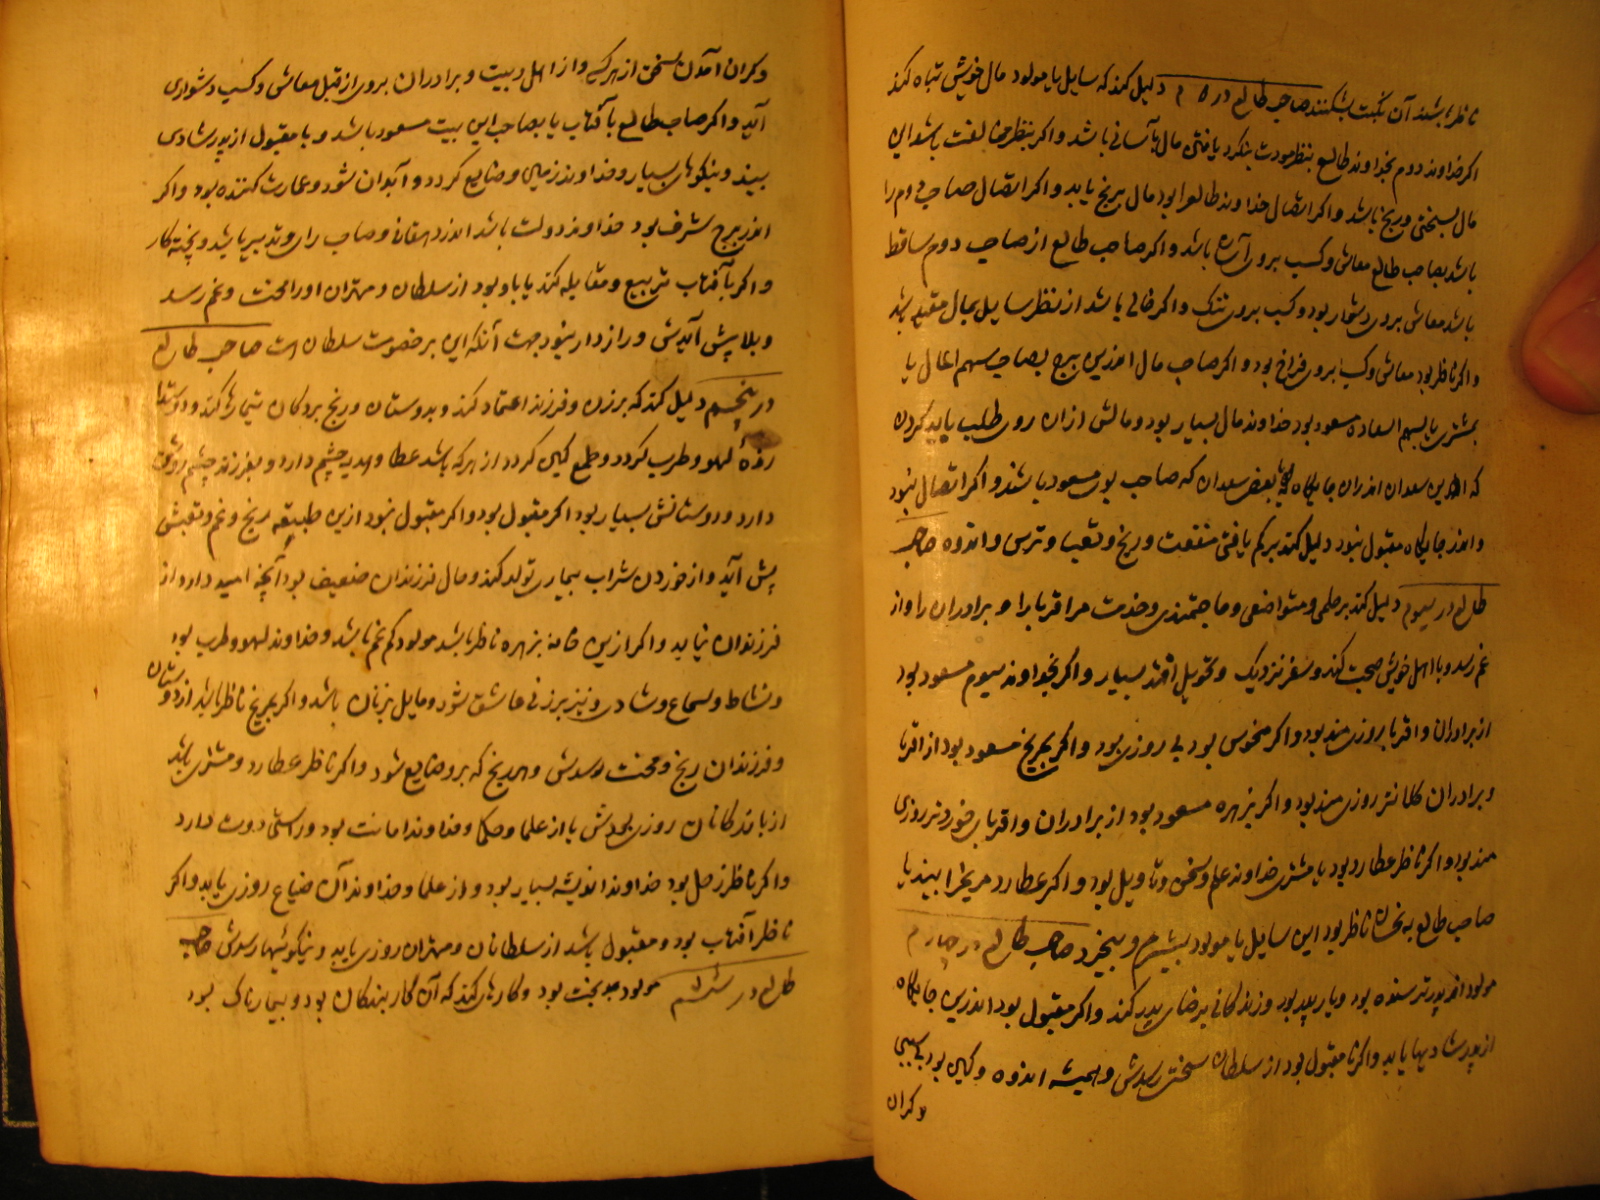 ناظر باشند آن نکبت بشکنند صاحب طالع در ۲ م دلیل کند که سایل یا مولود مال خویش تباه کند
اگر خداوند دوم بخداوند طالع بنظر مودت بنگرد یافتن مال بآسانی باشد و اگر بنظر مخالفت باشد این
مال بسختی و رنج باشد و اگر اتصال خداوند طالع را بود مال برنج یابد و اگر اتصال صاحب دوم را
باشد بصاحب طالع معاش و کسب بروی آسان باشد و اگر صاحب طالع از صاحب دوم ساقط
باشد معاش بروی دشوار بود و کسب بروی تنگ و اگر خالی باشد از نظر سایل بمال
و اگر ناظر بود معاش و کسب بروی فراخ بود و اگر صاحب مال اندرین برج بصاحب سهم اعمال یا
بمشتری یا بسهم السعاده مسعود بود خداوند مال بسیار بود و مالش ازان روی طلب باید کردن
که این سعدان اندران جایگاه بعضی سعدان که صاحب بوی مسعود باشند و اگر اتصال نبود
و اندر جایگاه مقبول نبود دلیل کند بر کم یافتن منفعت و رنج و تعب و ترس و اندوه صاحب
طالع در سیوم دلیل کند بر حلمی و متواضعی و حاجتمندی و خدمت مر اقربا را و برادران را و از
غم رسد و با اهل خویش صحبت کند و سفر نزدیک و تحویل افتد بسیار و اگر بخداوند سیوم مسعود بود
از برادران و اقربا روزی مند بود و اگر منحوس بود بی روزی بود و اگر بمریخ مسعود بود از اقربا
و برادران کلانتر روزی مند بود و اگر بزهره مسعود بود از برادران و اقربای خوردتر روزی
مند بود و اگر ناظر عطارد بود یا مشتری خداوند علم و سخن و تاویل بود و اگر عطارد مریخ را بیند یا
صاحب طالع به نحسان ناظر بود این سایل یا مولود بیشرم و بیخرد صاحب طالع در چهارم
مولود از پدر ترسنده بود و یار پدر بود و زندگانی برضای پدر کند و اگر مقبول بود اندرین جایگاه
از پدر شادیها یابد و اگر نامقبول بود از سلطان سختی رسدش و همیشه اندوه وکین بود بی سببی
وکران
وکران آمدن سخن از هر کسی و از اهل و بیت و برادران بروی از قبل معاش و کسب دشواری
آید و اگر صاحب طالع بآفتاب یا بصاحب این بیت مسعود باشد و یا مقبول از پدر شادی
بیند و نیکوهای بسیار و خداوند زمین و ضایع گردد و آبدان شود و عمارت کننده بود و اگر
اندر برج شرف بود خداوند دولت باشد اندر دهقانی و صاحب رای و تدبیر باشد و پخته کار
و اگر بآفتاب تربیع و مقابله کند یا باو بود از سلطان و مهتران او را محنت و غم رسد
و بلا پیش آیدش و رازدار نبود جهت آنکه این بر خصومت سلطان است صاحب طالع
در پنجم دلیل کند که بر زن و فرزند اعتماد کند و بدوستان و رنج بردگان تیمارها کند و دوستدا
رنده لهو و طرب گردد و طمع کین گردد از هر که باشد عطا و هدیه چشم دارد و بفرزند چشم روشن
دارد و دوستانش بسیار بود اگر مقبول بود و اگر مقبول نبود ازین طبیعه رنج و غم و تعبش
پیش آید و از خوردن شراب بیماری تولد کند و حال فرزندان ضعیف بود آنچه امید دارد از
فرزندان نیابد و اگر ازین خانه بزهره ناظر باشد مولود کم غم باشد و خداوند لهو و طرب بود
و نشاط و سماع و شادی و نیز بر زنی عاشق شود و مایل بزنان باشد و اگر بمریخ ناظر باشد از دوستان
و فرزندان رنج و محنت رسدش و هر رنج که برد ضایع شود و اگر ناظر عطارد و مشتری باشد
از بازرگانان روزی بودش یا از علما و حکما و خداوند امانت بود و راستی دوست دارد
و اگر ناظر زحل بود خداوند اندیشه بسیار بود و از علما و خداوند آن ضیاع روزی یابد و اگر
ناظر آفتاب بود و مقبول باشد از سلطانان و مهتران روزی یابد و نیکوئیها رسدش صاحب
طالع در ششم مولود بدبخت بود و کارهای کند که آن کار بندگان بود و بیمارناک بود